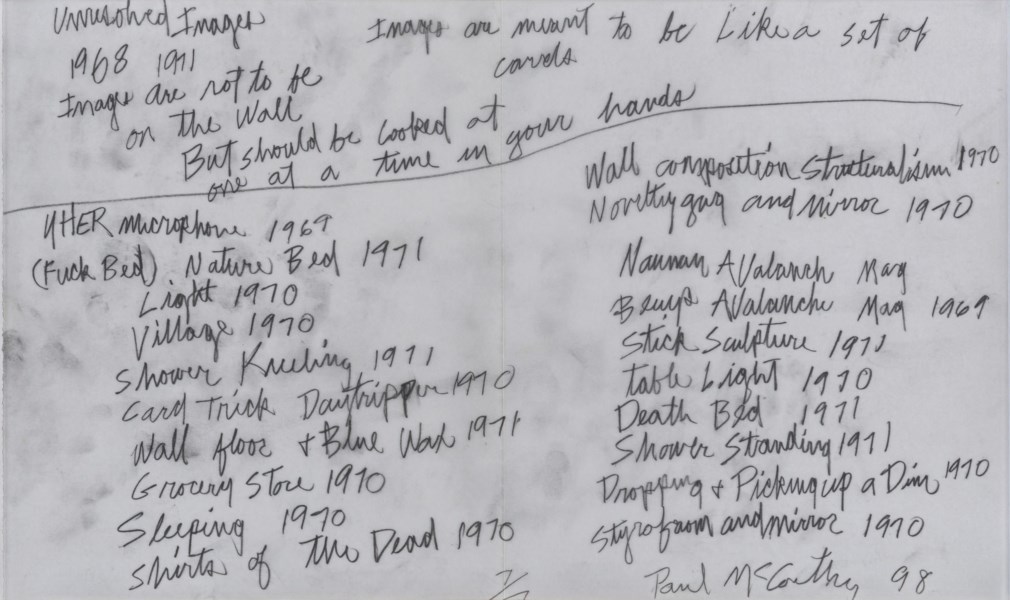 Unresolved Images
1968 1971
Images are not to be
on the Wall
But should be Looked at
one at a time in your hands
Images are meant to be Like a set of
cards
YHER microphone 1969
(Fuck Bed) Nature Bed 1971
Light 1970
Village 1970
Shower Kneeling 1971
Card Trick Daytripper 1970
Wall floor & Blue Wax 1971
Grocery Store 1970
Sleeping 1970
Shirts of the Dead 1970
Wall composition Structuralism 1970
Novelty gag and mirror 1970
Nauman AValanch Mag
Beuys AValanche Mag 1969
Stick Sculpture 1971
table Light 1970
Death Bed 1971
Shower Standing 1971
Dropping & Picking up a Dim 1970
Styrofoam and mirror 1970
Paul McCarthy 98